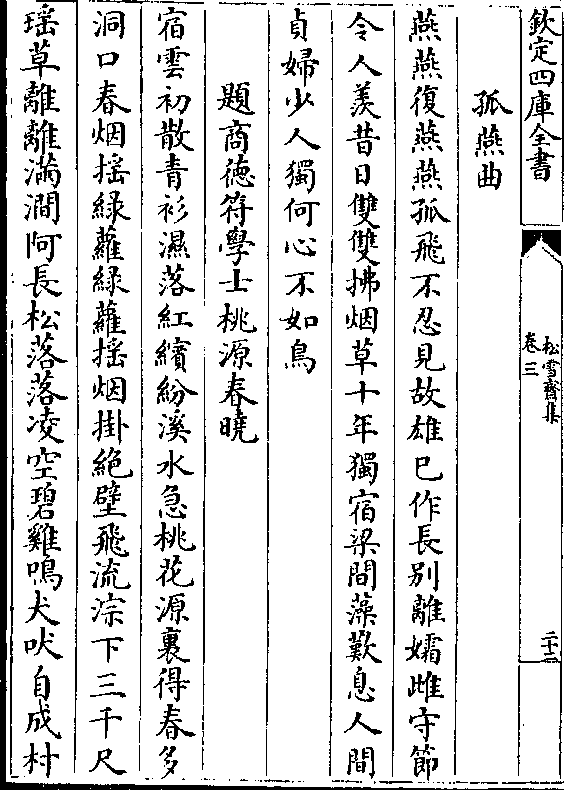 欽定四庫全書
松雪齋集
卷三
二十二
孤燕曲
燕燕復燕燕孤飛不忍見故雄已作長别離孀雌守節
令人羨昔日雙雙拂烟草十年獨宿梁間藻歎息人間
貞婦少人獨何心不如鳥
題商徳符學士桃源春曉
宿雲初散青衫濕落紅繽紛溪水急桃花源裏得春多
洞口春烟揺緑蘿緑蘿揺烟掛絶壁飛流淙下三千尺
瑶草離離滿澗阿長松落落凌空碧雞鳴犬吠自成村